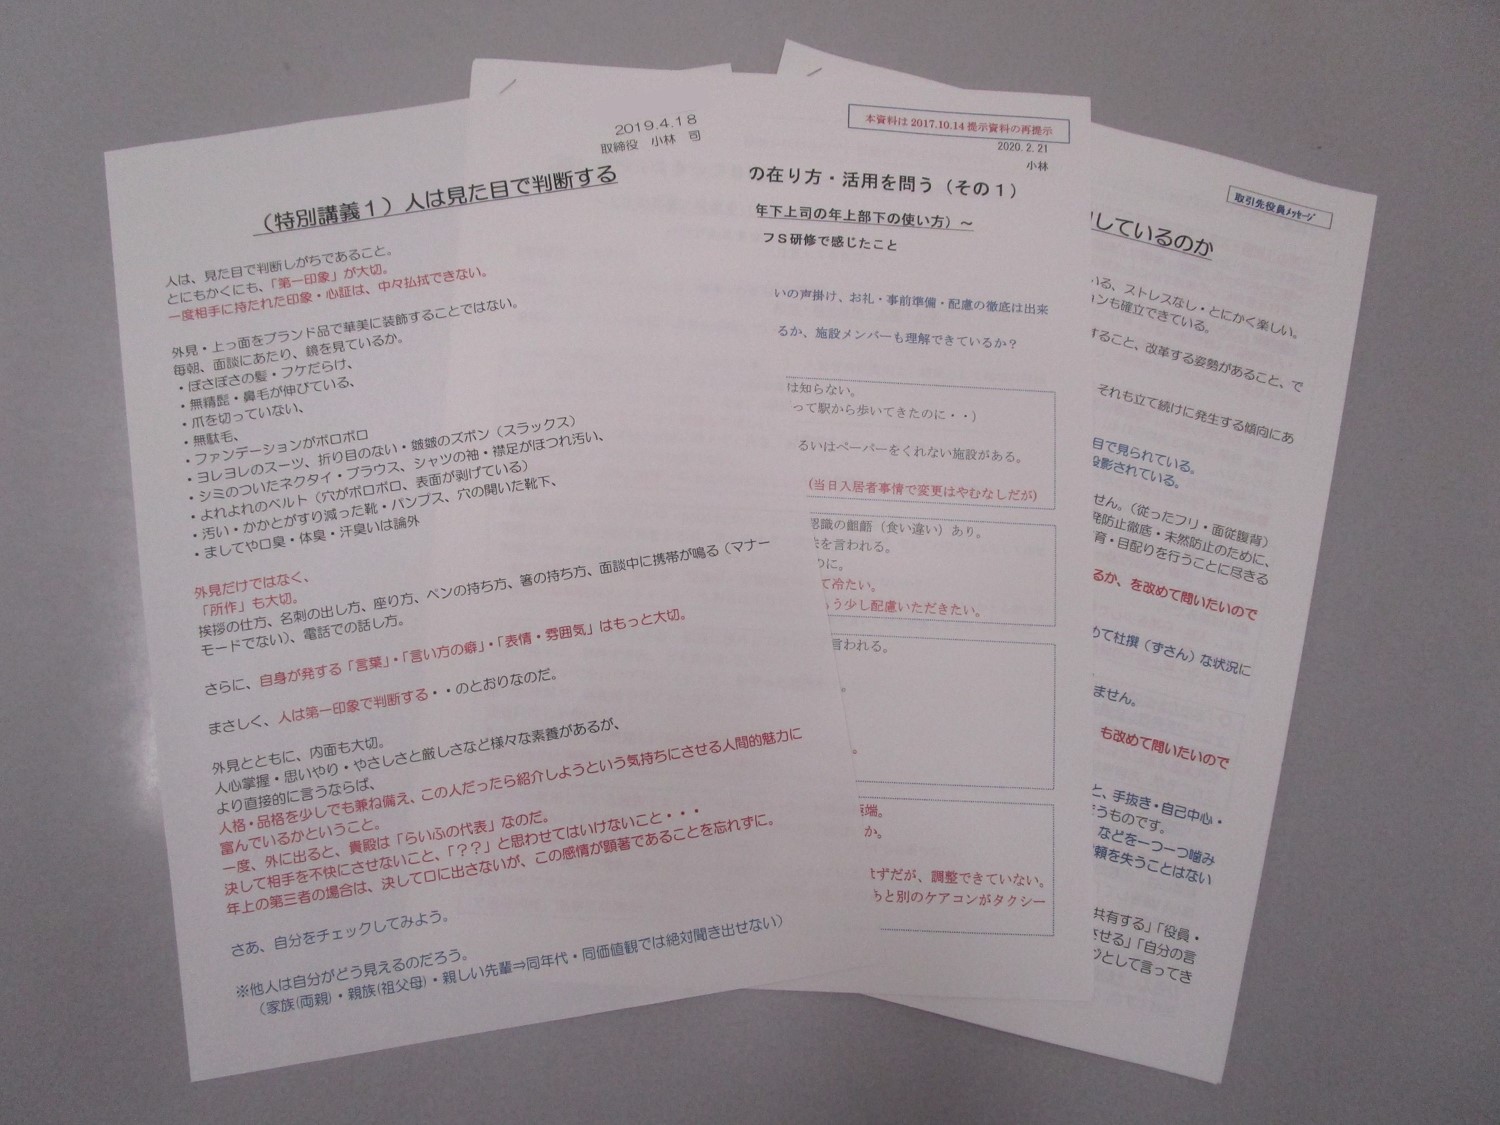 2019.4.18
取締役　小林　司
（特別講義１）人は見た目で判断する
人は、見た目で判断しがちであること。
とにもかくにも、「第一印象」が大切。
一度相手に持たれた印象・心証は、中々払拭できない。
外見・上っ面をブランド品で華美に装飾することではない。
毎朝、面談にあたり、鏡を見ているか。
・ぼさぼさの髪・フケだらけ、
・無精髭・鼻毛が伸びている、
・爪を切っていない、
・無駄毛、
・ファンデーションがボロボロ
・ヨレヨレのスーツ、折り目のない・皺皺のズボン（スラックス）
・シミのついたネクタイ・ブラウス、シャツの袖・襟足がほつれ汚い、
・よれよれのベルト（穴がボロボロ、表面が剥げている）
・汚い・かかとがすり減った靴・パンプス、穴の開いた靴下、
・ましてや口臭・体臭・汗臭いは論外
外見だけではなく、
「所作」も大切。
挨拶の仕方、名刺の出し方、座り方、ペンの持ち方、箸の持ち方、面談中に携帯が鳴る（マナー
モードでない）、電話での話し方。
さらに、自身が発する「言葉」・「言い方の癖」・「表情・雰囲気」はもっと大切。
まさしく、人は第一印象で判断する・・のとおりなのだ。
外見とともに、内面も大切。
人心掌握・思いやり・やさしさと厳しさなど様々な素養があるが、
より直接的に言うならば、
人格・品格を少しでも兼ね備え、この人だったら紹介しようという気持ちにさせる人間的魅力に
富んでいるかということ。
一度、外に出ると、貴殿は「らいふの代表」なのだ。
決して相手を不快にさせないこと、「？？」と思わせてはいけないこと・・・
年上の第三者の場合は、決して口に出さないが、この感情が顕著であることを忘れずに。
さあ、自分をチェックしてみよう。
※他人は自分がどう見えるのだろう。
（家族(両親)・親族(祖父母)・親しい先輩⇒同年代・同価値観では絶対聞き出せない）
本資料は2017.10.14提示資料の再提示
2020.2.21
小林
の在り方・活用を問う（その１）
年下上司の年上部下の使い方）～
フＳ研修で感じたこと
いの声掛け、お礼・事前準備・配慮の徹底は出来
るか、施設メンバーも理解できているか？
は知らない。
って駅から歩いてきたのに・・）
るいはペーパーをくれない施設がある。
（当日入居者事情で変更はやむなしだが）
認識の齟齬（食い違い）あり。
を言われる。
のに。
て冷たい。
もう少し配慮いただきたい。
言われる。
。
。
極端。
か。
はずだが、調整できていない。
あと別のケアコンがタクシー
取引先役員ﾒｯｾｰｼﾞ
しているのか
いる、ストレスなし・とにかく楽しい。
ョンも確立できている。
すること、改革する姿勢があること、で
それも立て続けに発生する傾向にあ
目で見られている。
投影されている。
せん。（従ったフリ・面従腹背）
発防止徹底・未然防止のために、
育・目配りを行うことに尽きる
るか、を改めて問いたいので
めて杜撰（ずさん）な状況に
ません。
も改めて問いたいので
と、手抜き・自己中心・
うものです。
などを一つ一つ噛み
頼を失うことはない
共有する」「役員・
させる」「自分の言
として言ってき